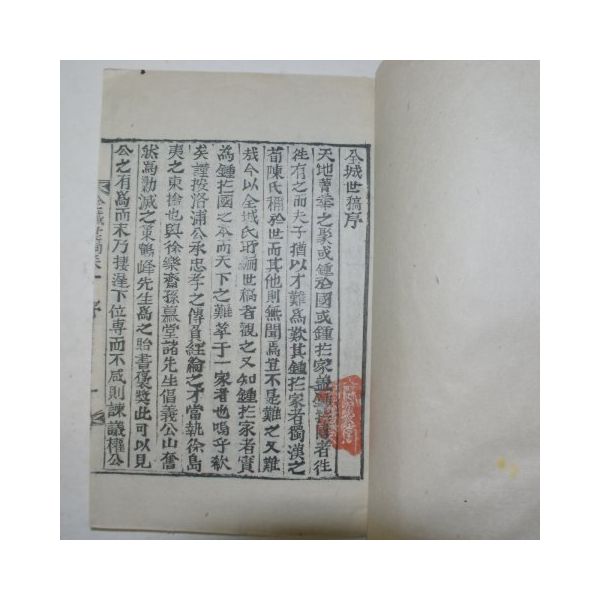 全城世稿序
天地菁華之聚或鍾於國或鍾於家盖鍾於國者徃
徃有之而夫子猶以才難爲歎其鍾於家者獨漢之
荀陳氏稱於世而其他則無聞焉豈不是難之又難
哉今以全城氏所編世稿者觀之又知鍾於家者實
爲鍾於國之本而天下之難萃于一家者也嗚乎欷
矣謹按洛浦公承忠孝之傳負經綸之才當執徐島
夷之東搶也與徐樂齋孫慕堂諸先生倡義公山奮
然爲勦滅之策鶴峰先生爲之貽書褒奬此可以見
公之有爲而末乃捿遑下位專而不咸則諫議權公